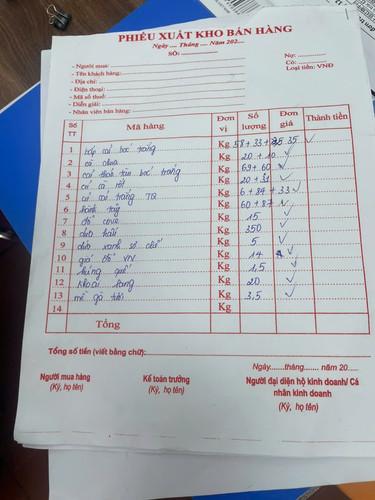 PHIẾU XUẤT KHO BÁN HÀNG
Ngày .... Tháng .... Năm 202....
SỐ: ....................
Nợ: ....................
Có: ....................
Loại tiền: VNĐ
- Người mua:
- Tên khách hàng:
- Địa chỉ:
- Điện thoại:
- Mã số thuế:
- Diễn giải:
- Nhân viên bán hàng:
Số TT Mã hàng Đơn vị Số lượng Đơn giá Thành tiền
1 bắp cải bóc trắng Kg 58+33+ 35 ✓
2 cà chua Kg 20+10 ✓
3 cải thảo bóc trắng Kg 69+60
4 củ cà rốt Kg 20+31 ✓
5 củ cải trắng TQ Kg 6+84+33 ✓
6 hành tây Kg 60+87
7 đỗ cove Kg 15 ✓
8 dưa hấu Kg 350 ✓
9 dưa Kg 5 ✓
10 giá đỗ VN Kg 14 ✓
11 húng quế Kg 1,5 ✓
12 khoai lang Kg 20 ✓
13 mề gà tươi Kg 3,5 ✓
14 Kg
Tổng
Tổng số tiền (viết bằng chữ):
Ngày......tháng....... năm 20.....
Người mua hàng Kế toán trưởng Người đại diện hộ kinh doanh/ Cá nhân kinh doanh
(Ký, họ tên) (Ký, họ tên) (Ký, họ tên)